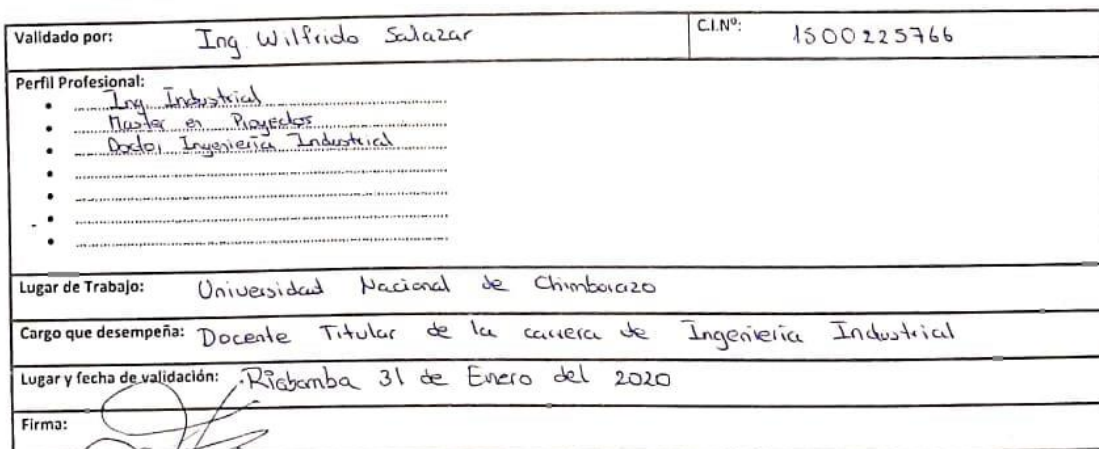 Validado por: Ing. Wilfrido Salazar C.I.Nº: 1500225766
Perfil Profesional:
• Ing. Industrial
• Master en Proyectos
• Doctor Ingeniería Industrial
•
•
•
•
Lugar de Trabajo: Universidad Nacional de Chimborazo
Cargo que desempeña: Docente Titular de la carrera de Ingeniería Industrial
Lugar y fecha de validación: Riobamba 31 de Enero del 2020
Firma: